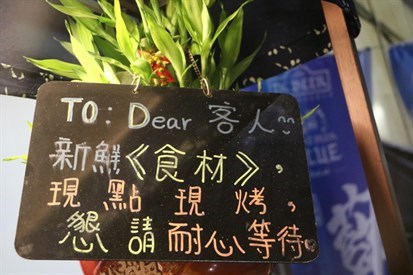 TO: Dear 客人^^
新鮮《食材》,
現點現烤,
懇請耐心等待